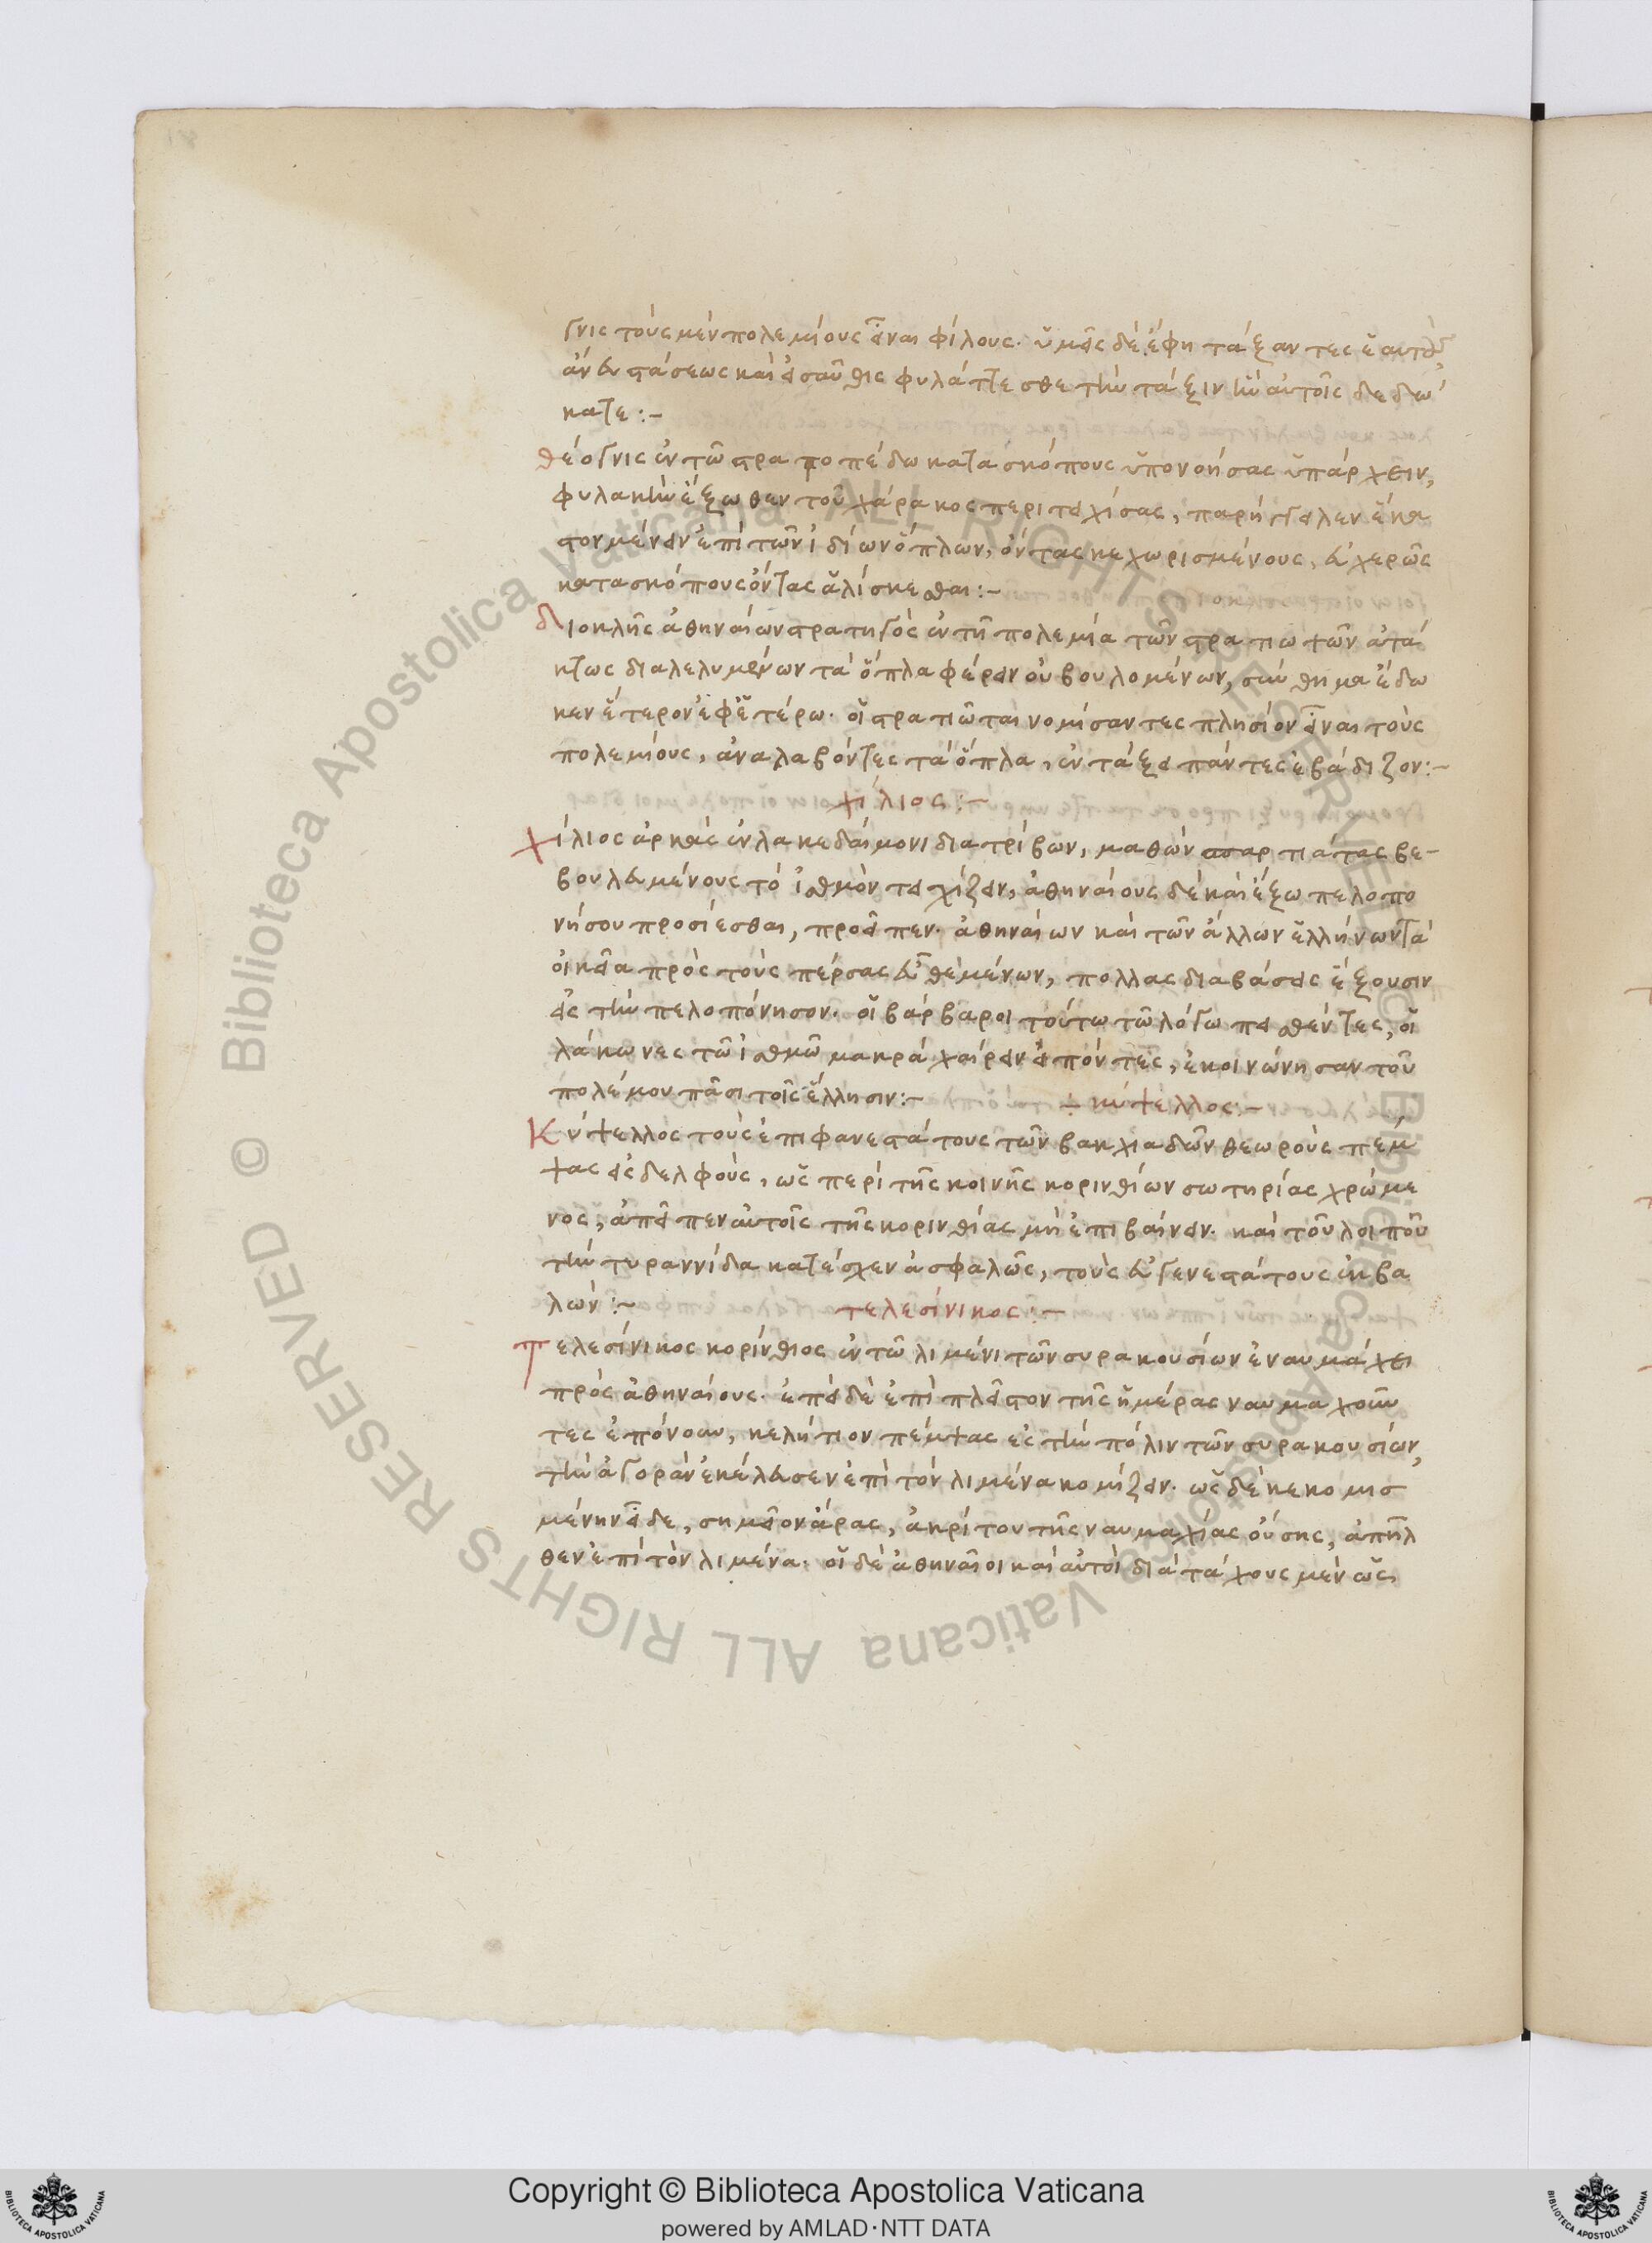 γνις τοὺς μὲν πολεμίους εἶναι φίλους. ὑμεῖς δὲ ἔφη τάξαντες ἑαυτοὺς
ἀνευ στάσεως καὶ εἰσαῦθις φυλάττεσθε τὴν τάξιν ἣν αὑτοῖς δεδώ
κατε:~
θέογνις ἐν τῶ στρατοπέδω κατασκόπους ὑπονοήσας ὑπάρχειν,
φυλακὴν ἔξωθεν τοῦ χάρακος περιτειχίσας, παρήγγειλεν ἕκα
στον μένειν ἐπὶ τῶν ἰδίων ὅπλων, ὄντας κεχωρισμένους, εὐχερῶς
κατασκόπους ὄντας ἁλίσκεσθαι:~
Διοκλῆς ἀθηναίων στρατηγὸς ἐν τῆ πολεμία τῶν στρατιωτῶν ἀτά
κτως διαλελυμένων τὰ ὅπλα φέρειν οὐ βουλομένων, σύνθημα ἔδω
κεν ἕτερον ἐφ ἑτέρω. οἱ στρατιῶται νομίσαντες πλησίον εἶναι τοὺς
πολεμίους, ἀναλαβόντες τὰ ὅπλα, ἐν τάξει πάντες ἐβάδιζον:~
χίλιος:~
Χίλιος ἀρκὰς ἐν λακεδαίμονι διατρίβων, μαθὼν σπαρτιάτας βε-
βουλευμένους τὸ ἰσθμὸν τειχίζειν, ἀθηναίους δὲ καὶ ἔξω πελοπο
νήσου προσίεσθαι, προεῖπεν. ἀθηναίων καὶ τῶν ἄλλων ἑλλήνων τὰ
οἰκεῖα πρὸς τοὺς πέρσας εὖ θεμένων, πολλας διαβάσεις ἕξουσιν
εἰς τὴν πελοπόνησον. οἱ βάρβαροι τούτω τῶ λόγω πεισθέντες, οἱ
λάκωνες τῶ ἰσθμῶ μακρὰ χαίρειν εἰπόντες, ἐκοινώνησαν τοῦ
πολέμου πᾶσι τοῖς ἕλλησιν:~ ~ κύψελλος:~
Κύψελλος τοὺς ἐπιφανεστάτους τῶν βακχιαδῶν θεωροὺς πέμ
ψας εἰς δελφοὺς, ὡς περὶ τῆς κοινῆς κορινθίων σωτηρίας χρώμε
νος, ἀπεῖπεν αὐτοῖς τῆς κορινθίας μὴ ἐπιβαίνειν. καὶ τοῦ λοιποῦ
τὴν τυραννίδα κατέσχεν ἀσφαλῶς, τοὺς εὐγενεστάτους ἐκβα
λών:~ τελεσίνικος:~
Τελεσίνικος κορίνθιος ἐν τῶ λιμένι τῶν συρακουσίων ἐναυμάχει
πρὸς ἀθηναίους. ἐπεὶ δὲ ἐπὶ πλεῖστον τῆς ἡμέρας ναυμαχοῦν
τες ἐπόνουν, κελήτιον πέμψας ες τὴν πόλιν τῶν συρακουσίων,
τὴν ἀγορὰν ἐκέλευσεν ἐπὶ τὸν λιμένα κομίζειν. ὡς δὲ κεκομισ
μένην εἶδε, σημεῖον ἄρας, ἀκρίτου τῆς ναυμαχίας οὔσης, ἀπῆλ
θεν ἐπὶ τὸν λιμένα. οἱ δὲ ἀθηναῖοι καὶ αὐτοὶ διὰ τάχους μὲν ὡς
Copyright © Biblioteca Apostolica Vaticana
powered by AMLAD·NTT DATA
© Biblioteca Apostolica Vaticana ALL RIGHTS RESERVED
© Biblioteca Apostolica Vaticana ALL RIGHTS RESERVED